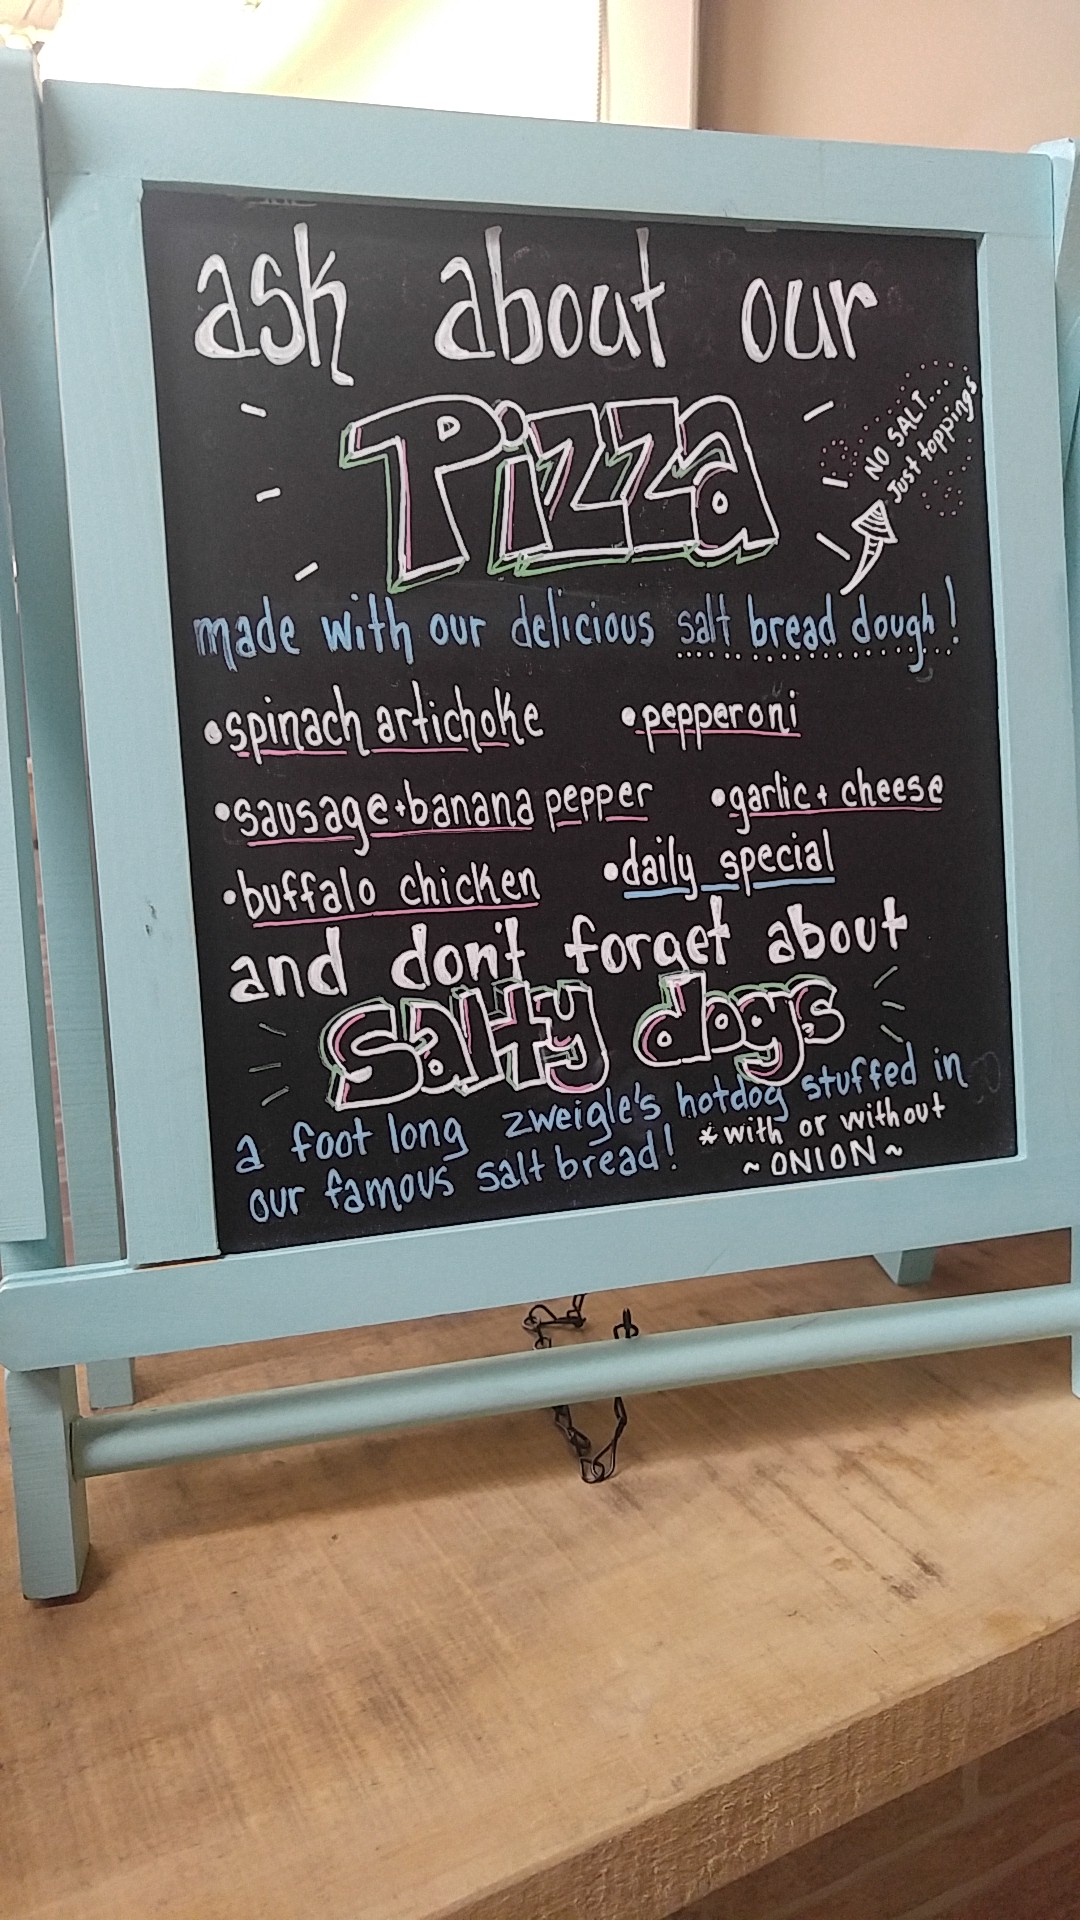 ask about our
Pizza
NO SALT...
Just toppings
made with our delicious salt bread dough!
•spinach artichoke •pepperoni
•sausage+banana pepper •garlic+cheese
•buffalo chicken •daily special
and don't forget about
salty dogs
a foot long zweigle's hotdog stuffed in
our famous salt bread! *with or without
~ONION~